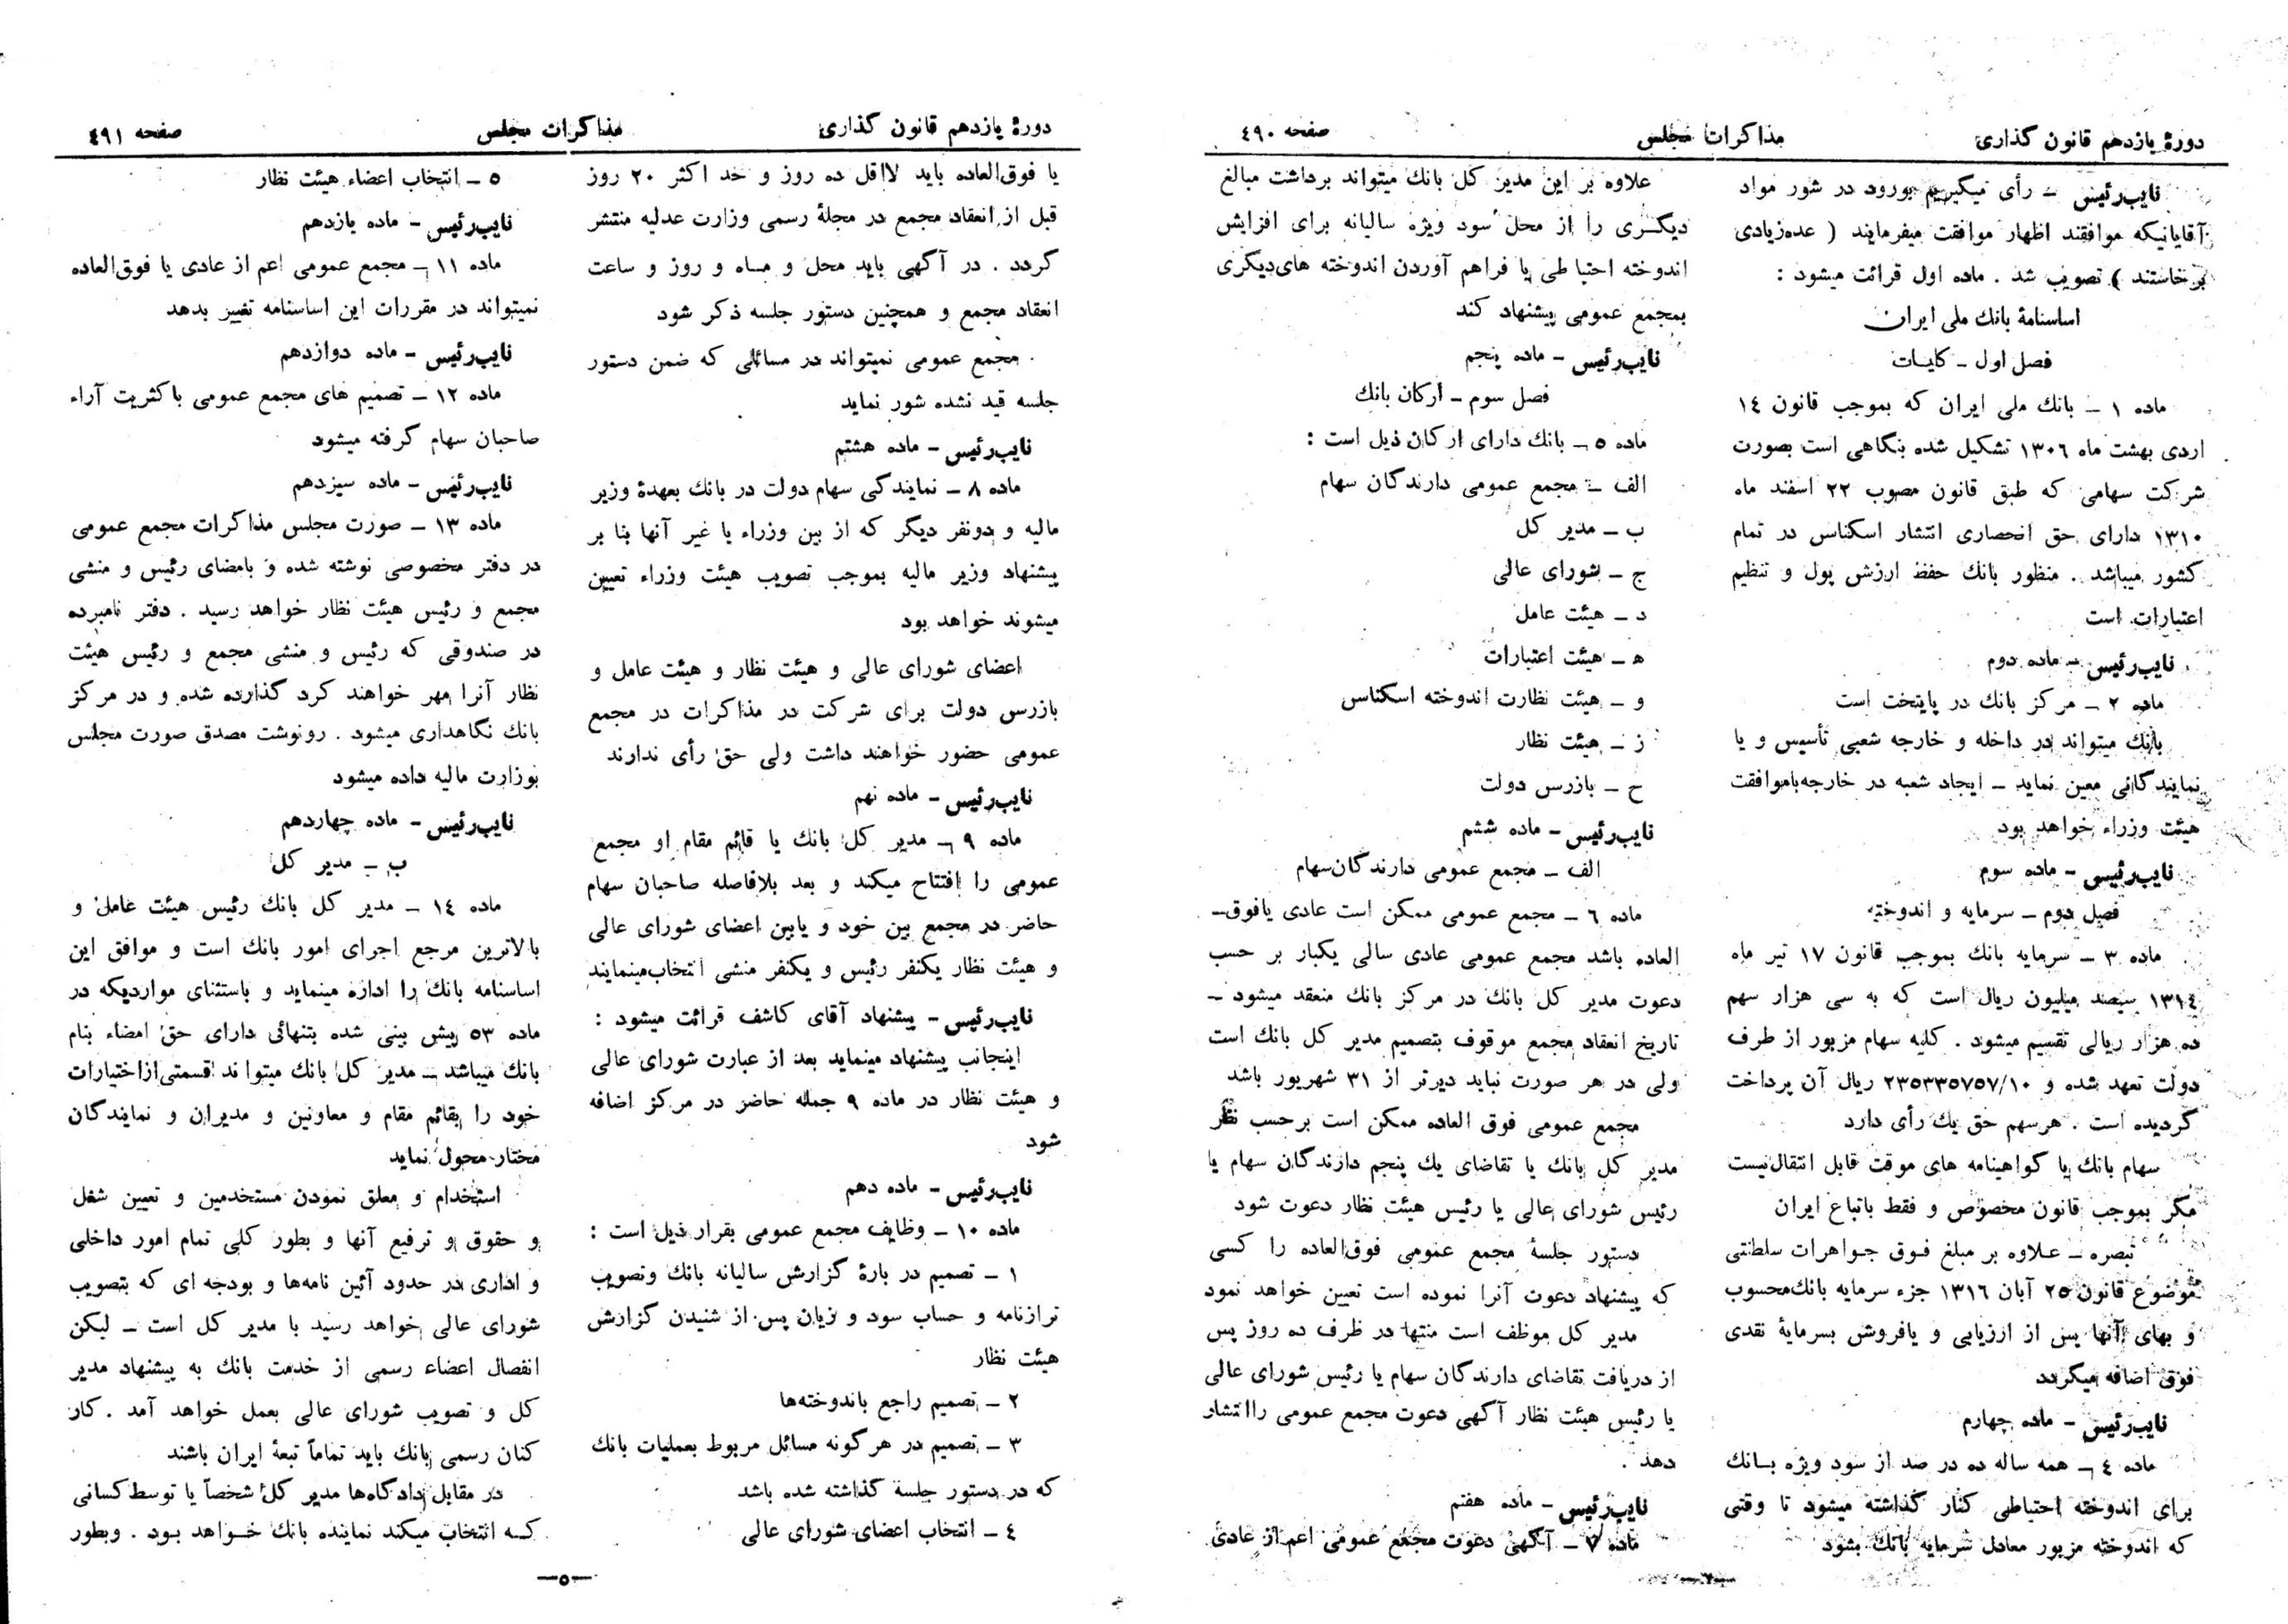 دورهٔ یازدهم قانون گذاری
مذاکرات مجلس
صفحه ٤٩٠
نایب‌رئیس ــ رأی میگیریم بورود در شور مواد
آقایانیکه موافقند اظهار موافقت میفرمایند ( عده‌زیادی
برخاستند ) تصویب شد . ماده اول قرائت میشود :
اساسنامهٔ بانك ملی ایران
فصل اول ــ کلیات
ماده ١ ــ بانك ملی ایران که بموجب قانون ١٤
اردی بهشت ماه ١٣٠٦ تشکیل شده بنگاهی است بصورت
شرکت سهامی که طبق قانون مصوب ٢٢ اسفند ماه
١٣١٠ دارای حق انحصاری انتشار اسکناس در تمام
کشور میباشد . منظور بانك حفظ ارزش پول و تنظیم
اعتبارات است
نایب‌رئیس ــ ماده دوم
ماده ٢ ــ مرکز بانك در پایتخت است
بانك میتواند در داخله و خارجه شعبی تأسیس و یا
نمایندگانی معین نماید ــ ایجاد شعبه در خارجه باموافقت
هیئت وزراء خواهد بود
نایب‌رئیس ــ ماده سوم
فصل دوم ــ سرمایه و اندوخته
ماده ٣ ــ سرمایه بانك بموجب قانون ١٧ تیر ماه
١٣١٤ سیصد میلیون ریال است که به سی هزار سهم
ده هزار ریالی تقسیم میشود . کلیه سهام مزبور از طرف
دولت تعهد شده و ٢٣٥٣٣٥٧٥٧/١٠ ریال آن پرداخت
گردیده است . هرسهم حق یك رأی دارد
سهام بانك یا گواهینامه های موقت قابل انتقال‌نیست
مگر بموجب قانون مخصوص و فقط باتباع ایران
تبصره ــ علاوه بر مبلغ فوق جواهرات سلطنتی
موضوع قانون ٢٥ آبان ١٣١٦ جزء سرمایه بانك‌محسوب
و بهای آنها پس از ارزیابی و یافروش بسرمایهٔ نقدی
فوق اضافه میگردد
نایب‌رئیس ــ ماده چهارم
ماده ٤ ــ همه ساله ده در صد از سود ویژه بانك
برای اندوخته احتیاطی کنار گذاشته میشود تا وقتی
که اندوخته مزبور معادل سرمایه بانك بشود
علاوه بر این مدیر کل بانك میتواند برداشت مبالغ
دیگری را از محل سود ویژه سالیانه برای افزایش
اندوخته احتیاطی یا فراهم آوردن اندوخته های‌دیگری
بمجمع عمومی پیشنهاد کند
نایب‌رئیس ــ ماده پنجم
فصل سوم ــ ارکان بانك
ماده ٥ ــ بانك دارای ارکان ذیل است :
الف ــ مجمع عمومی دارندگان سهام
ب ــ مدیر کل
ج ــ شورای عالی
د ــ هیئت عامل
ه ــ هیئت اعتبارات
و ــ هیئت نظارت اندوخته اسکناس
ز ــ هیئت نظار
ح ــ بازرس دولت
نایب‌رئیس ــ ماده ششم
الف ــ مجمع عمومی دارندگان‌سهام
ماده ٦ ــ مجمع عمومی ممکن است عادی یافوق‌ــ
العاده باشد مجمع عمومی عادی سالی یکبار بر حسب
دعوت مدیر کل بانك در مرکز بانك منعقد میشود ــ
تاریخ انعقاد مجمع موقوف بتصمیم مدیر کل بانك است
ولی در هر صورت نباید دیرتر از ٣١ شهریور باشد
مجمع عمومی فوق العاده ممکن است برحسب نظر
مدیر کل بانك یا تقاضای یك پنجم دارندگان سهام یا
رئیس شورای عالی یا رئیس هیئت نظار دعوت شود
دستور جلسهٔ مجمع عمومی فوق‌العاده را کسی
که پیشنهاد دعوت آنرا نموده است تعیین خواهد نمود
مدیر کل موظف است منتها در ظرف ده روز پس
از دریافت تقاضای دارندگان سهام یا رئیس شورای عالی
یا رئیس هیئت نظار آگهی دعوت مجمع عمومی راانتشار
دهد .
نایب‌رئیس ــ ماده هفتم
ماده ٧ ــ آگهی دعوت مجمع عمومی اعم از عادی
دورهٔ یازدهم قانون گذاری
مذاکرات مجلس
صفحه ٤٩١
یا فوق‌العاده باید لااقل ده روز و حد اکثر ٢٠ روز
قبل از انعقاد مجمع در مجلهٔ رسمی وزارت عدلیه منتشر
گردد . در آگهی باید محل و ماه و روز و ساعت
انعقاد مجمع و همچنین دستور جلسه ذکر شود
مجمع عمومی نمیتواند در مسائلی که ضمن دستور
جلسه قید نشده شور نماید
نایب‌رئیس ــ ماده هشتم
ماده ٨ ــ نمایندگی سهام دولت در بانك بعهدهٔ وزیر
مالیه و دونفر دیگر که از بین وزراء یا غیر آنها بنا بر
پیشنهاد وزیر مالیه بموجب تصویب هیئت وزراء تعیین
میشوند خواهد بود
اعضای شورای عالی و هیئت نظار و هیئت عامل و
بازرس دولت برای شرکت در مذاکرات در مجمع
عمومی حضور خواهند داشت ولی حق رأی ندارند
نایب‌رئیس ــ ماده نهم
ماده ٩ ــ مدیر کل بانك یا قائم مقام او مجمع
عمومی را افتتاح میکند و بعد بلافاصله صاحبان سهام
حاضر در مجمع بین خود و یابین اعضای شورای عالی
و هیئت نظار یکنفر رئیس و یکنفر منشی انتخاب‌مینمایند
نایب‌رئیس ــ پیشنهاد آقای کاشف قرائت میشود :
اینجانب پیشنهاد مینماید بعد از عبارت شورای عالی
و هیئت نظار در ماده ٩ جمله حاضر در مرکز اضافه
شود
نایب‌رئیس ــ ماده دهم
ماده ١٠ ــ وظایف مجمع عمومی بقرار ذیل است :
١ ــ تصمیم در بارهٔ گزارش سالیانه بانك وتصویب
ترازنامه و حساب سود و زیان پس از شنیدن گزارش
هیئت نظار
٢ ــ تصمیم راجع باندوخته‌ها
٣ ــ تصمیم در هرگونه مسائل مربوط بعملیات بانك
که در دستور جلسه گذاشته شده باشد
٤ ــ انتخاب اعضای شورای عالی
٥ ــ انتخاب اعضاء هیئت نظار
نایب‌رئیس ــ ماده یازدهم
ماده ١١ ــ مجمع عمومی اعم از عادی یا فوق‌العاده
نمیتواند در مقررات این اساسنامه تغییر بدهد
نایب‌رئیس ــ ماده دوازدهم
ماده ١٢ ــ تصمیم های مجمع عمومی باکثریت آراء
صاحبان سهام گرفته میشود
نایب‌رئیس ــ ماده سیزدهم
ماده ١٣ ــ صورت مجلس مذاکرات مجمع عمومی
در دفتر مخصوصی نوشته شده و بامضای رئیس و منشی
مجمع و رئیس هیئت نظار خواهد رسید . دفتر نامبرده
در صندوقی که رئیس و منشی مجمع و رئیس هیئت
نظار آنرا مهر خواهند کرد گذارده شده و در مرکز
بانك نگاهداری میشود . رونوشت مصدق صورت مجلس
بوزارت مالیه داده میشود
نایب‌رئیس ــ ماده چهاردهم
ب ــ مدیر کل
ماده ١٤ ــ مدیر کل بانك رئیس هیئت عامل و
بالاترین مرجع اجرای امور بانك است و موافق این
اساسنامه بانك را اداره مینماید و باستثنای مواردیکه در
ماده ٥٣ پیش بینی شده بتنهائی دارای حق امضاء بنام
بانك میباشد ــ مدیر کل بانك میتواند قسمتی‌ازاختیارات
خود را بقائم مقام و معاونین و مدیران و نمایندگان
مختار محول نماید
استخدام و معلق نمودن مستخدمین و تعیین شغل
و حقوق و ترفیع آنها و بطور کلی تمام امور داخلی
و اداری در حدود آئین نامه‌ها و بودجه ای که بتصویب
شورای عالی خواهد رسید با مدیر کل است ــ لیکن
انفصال اعضاء رسمی از خدمت بانك به پیشنهاد مدیر
کل و تصویب شورای عالی بعمل خواهد آمد . کار
کنان رسمی بانك باید تماماً تبعهٔ ایران باشند
در مقابل دادگاه‌ها مدیر کل شخصاً یا توسط کسانی
که انتخاب میکند نماینده بانك خواهد بود . وبطور
ــ٥ــ